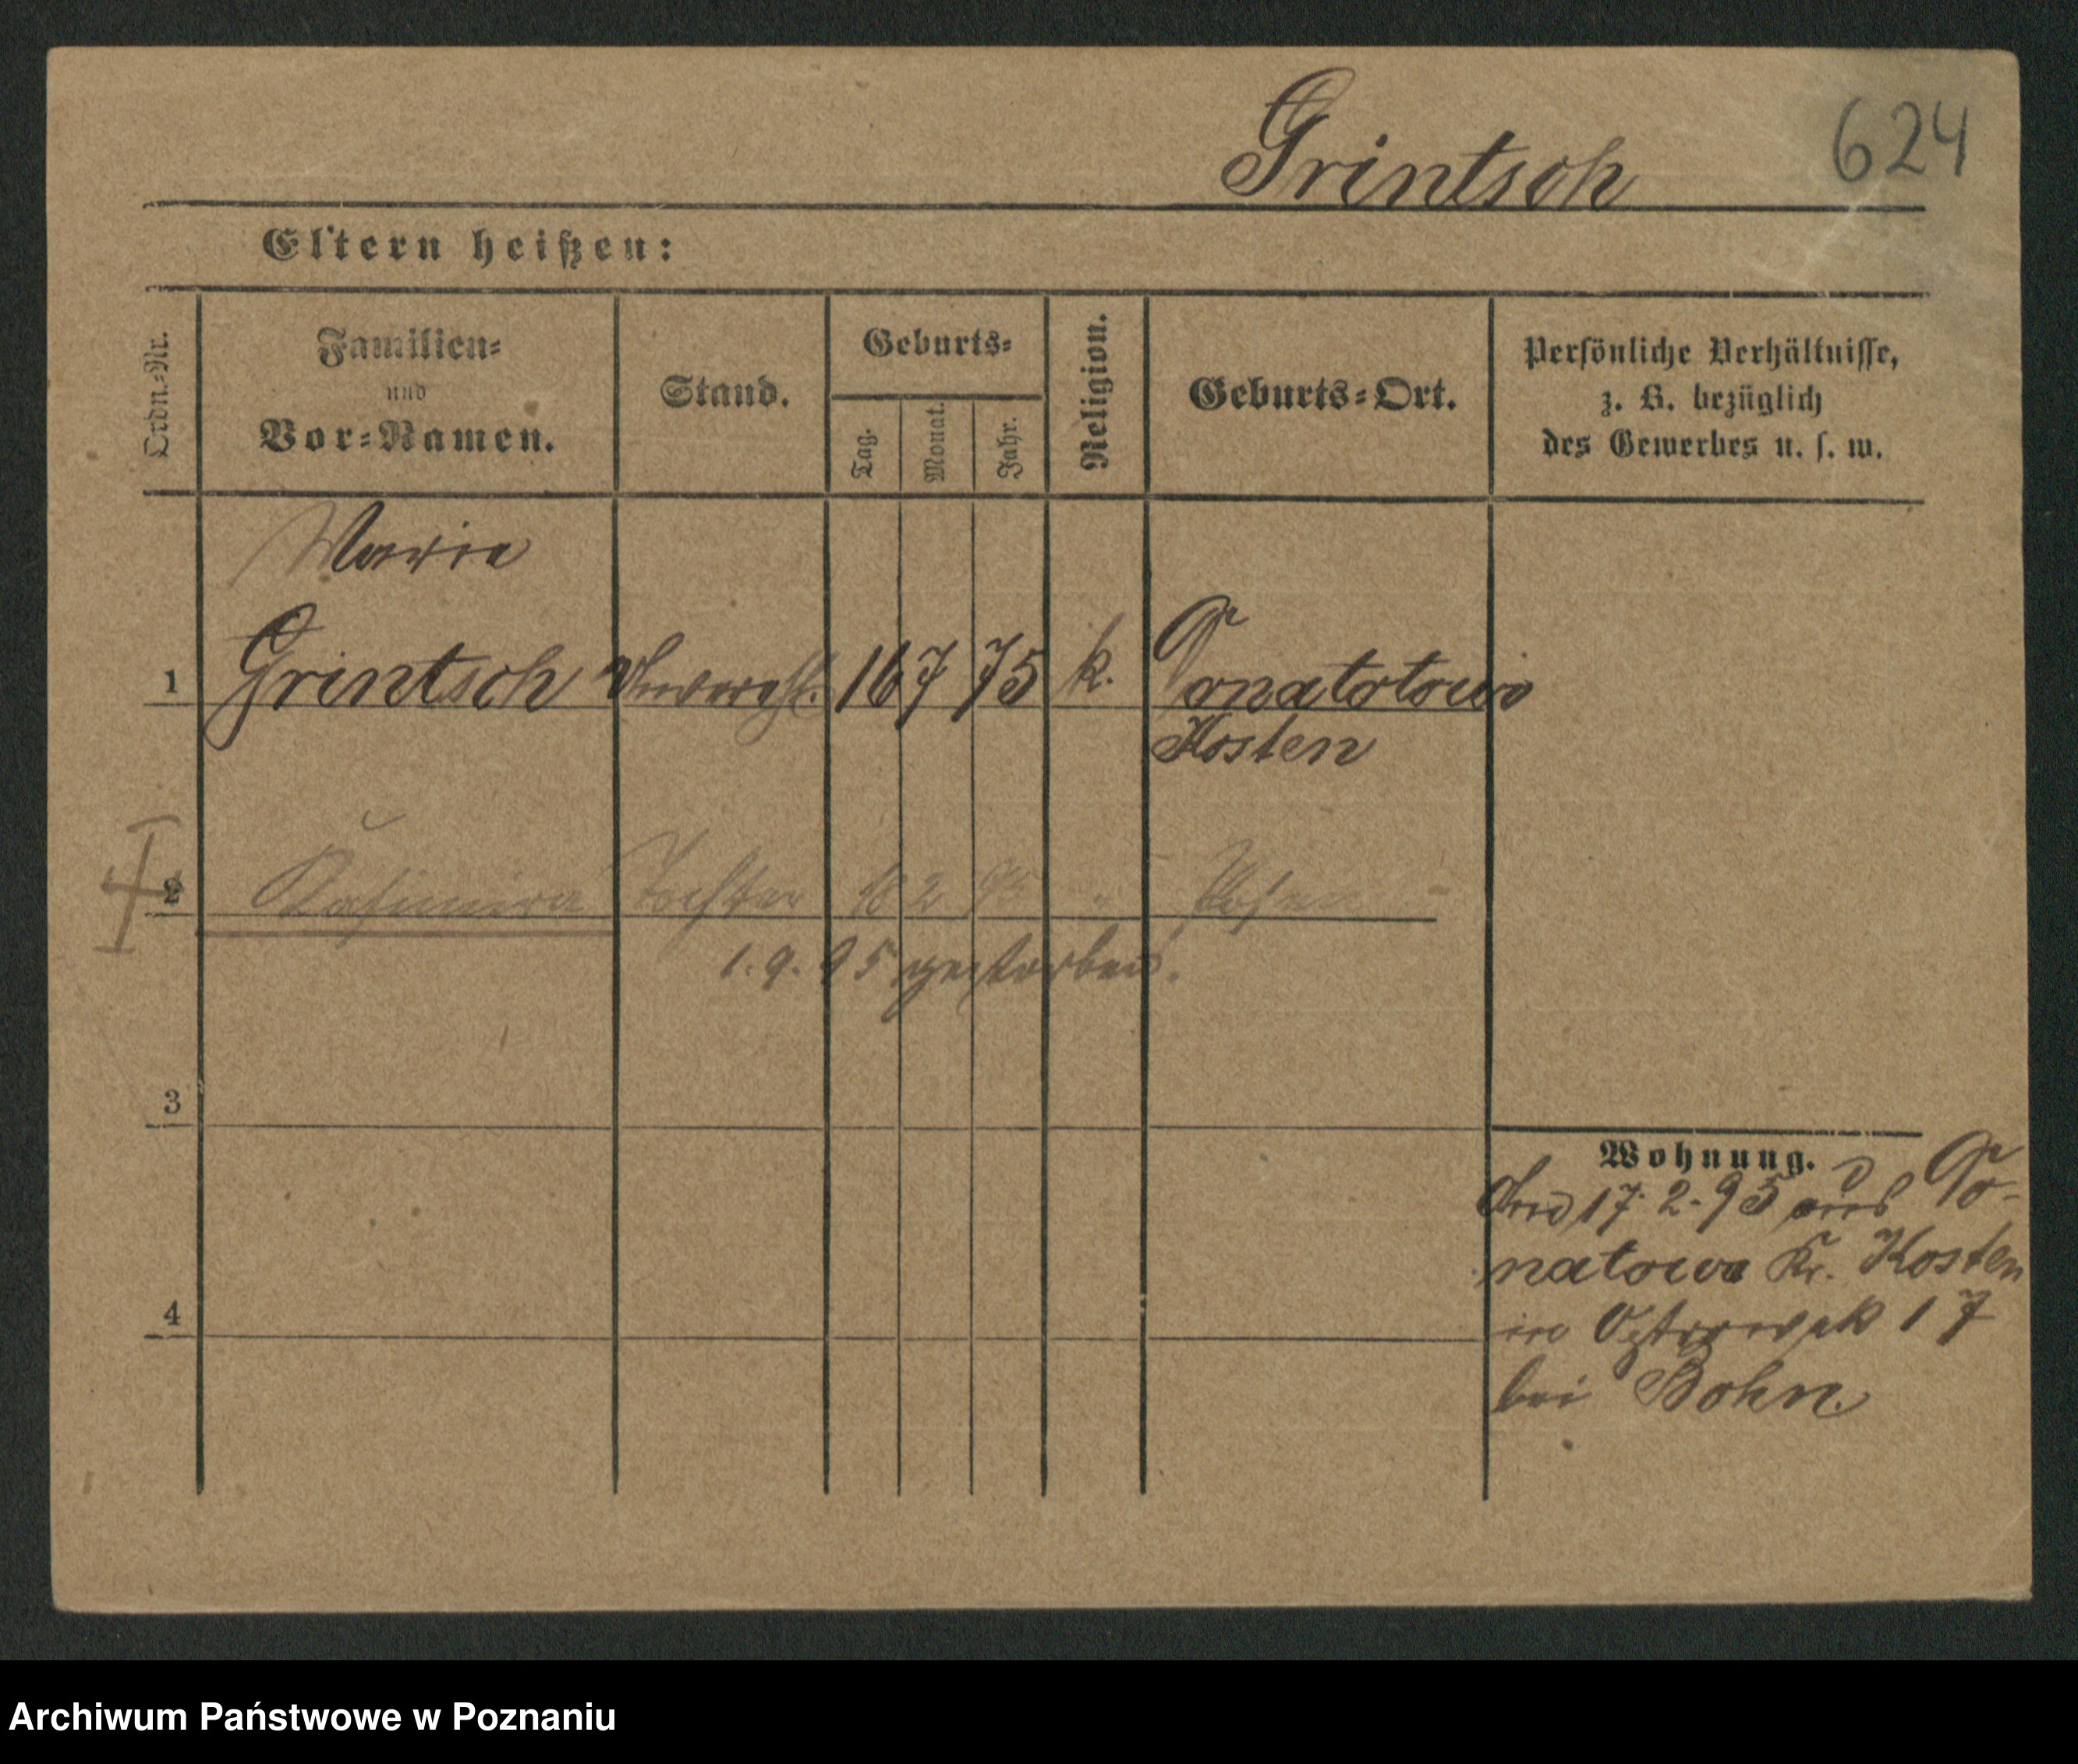 Grintsch
624
Eltern heißen:
Ordn.-Nr.
Familien-
und
Vor-Namen.
Stand.
Geburts-
Tag.
Monat.
Jahr.
Religion.
Geburts-Ort.
Persönliche Verhältnisse,
z. B. bezüglich
des Gewerbes u. s. w.
Marie
1 Grintsch Unverehl. 16 7 75 k.
Kosten
2 Kasimira Tochter 2 95 " Posen
1. 9. 95 gestorben.
3
Wohnung.
17. 2. 95 aus Go-
natowo Kr. Kosten
4
in Ostrowek 17
bei Bohn.
Archiwum Państwowe w Poznaniu